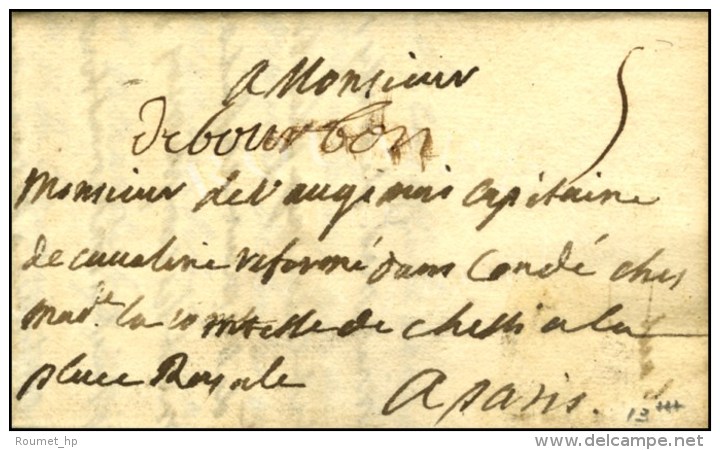 A Monsieur
5
debourbon
Monsieur de l'augimois Capitaine
de cavalerie reformé dans Condé ches
mad.e la Comtesse de Chessi a la
place Royale
A paris.
13 +++
Roumet_hp
delcampe.net